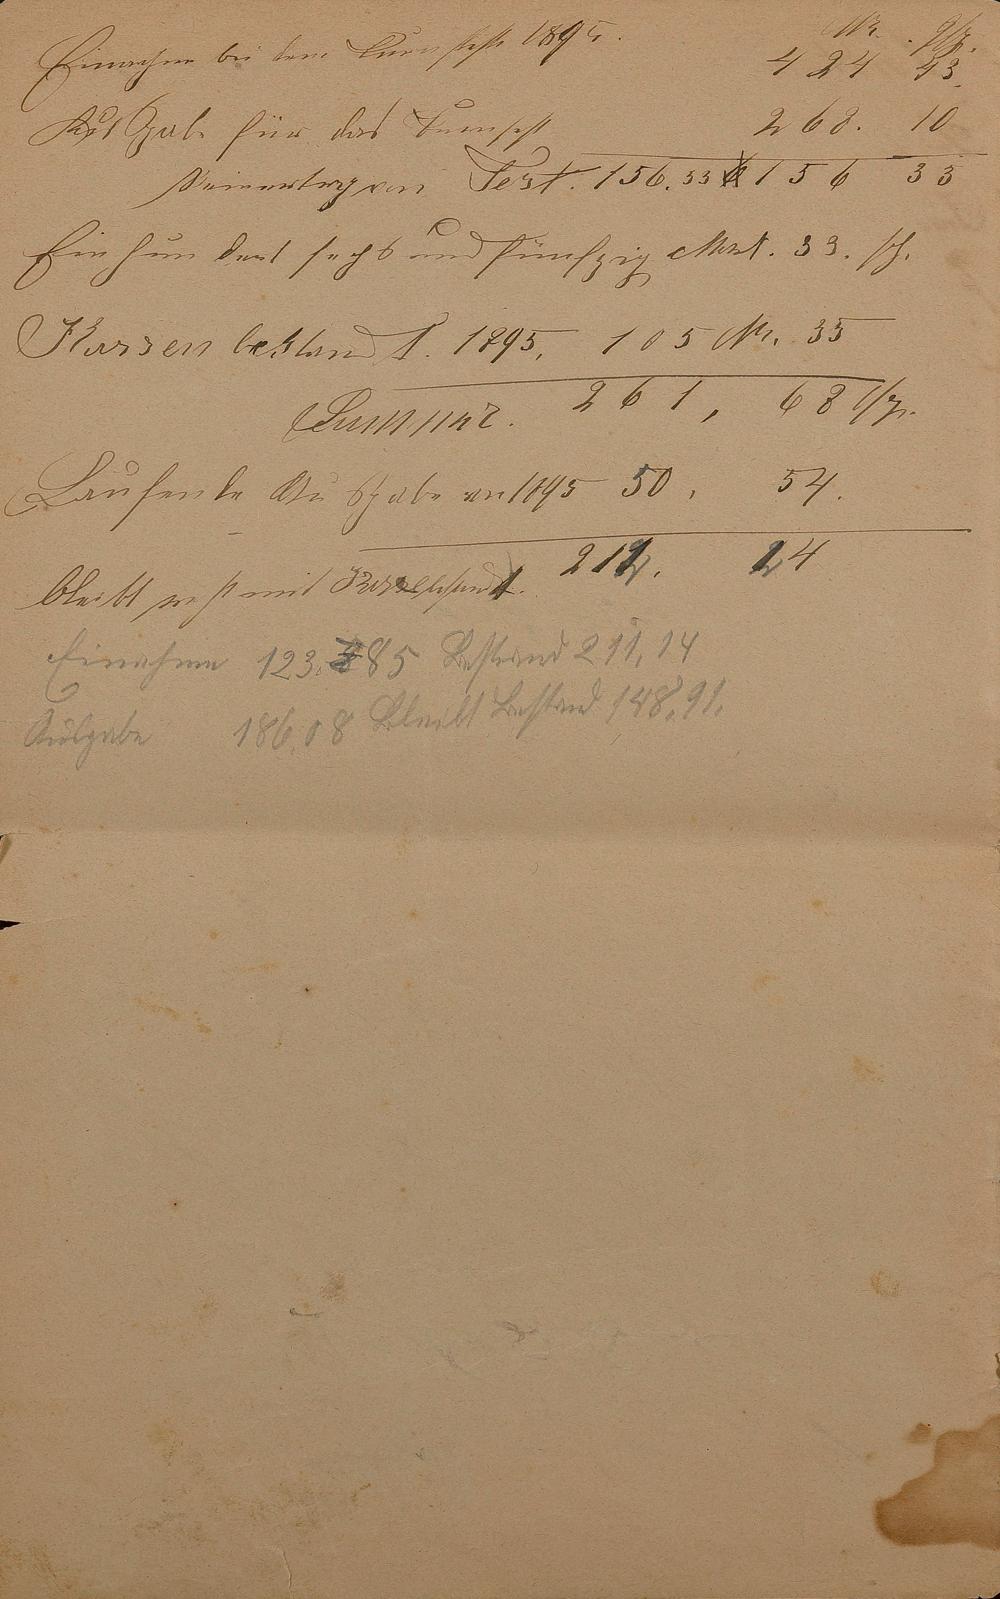 Mk. Pfg.
Einnahme bei dem Turnfest 1895. 424 43.
Ausgabe für das Turnfest 268. 10
Reinertrag von Fest. 156.33 156 33
Ein hundert sechs und fünfzig Mark. 33. Pf.
Kassen bestand 1895, 105 Mk. 35
Summe. 261, 68 Pfg.
Laufende Ausgabe 1895 50, 54.
bleibt mit Kassebestand. 211. 14
Einahme 123.85 Bestand 211,14
Ausgabe 186,08 Bleibt Bestand 148,91.